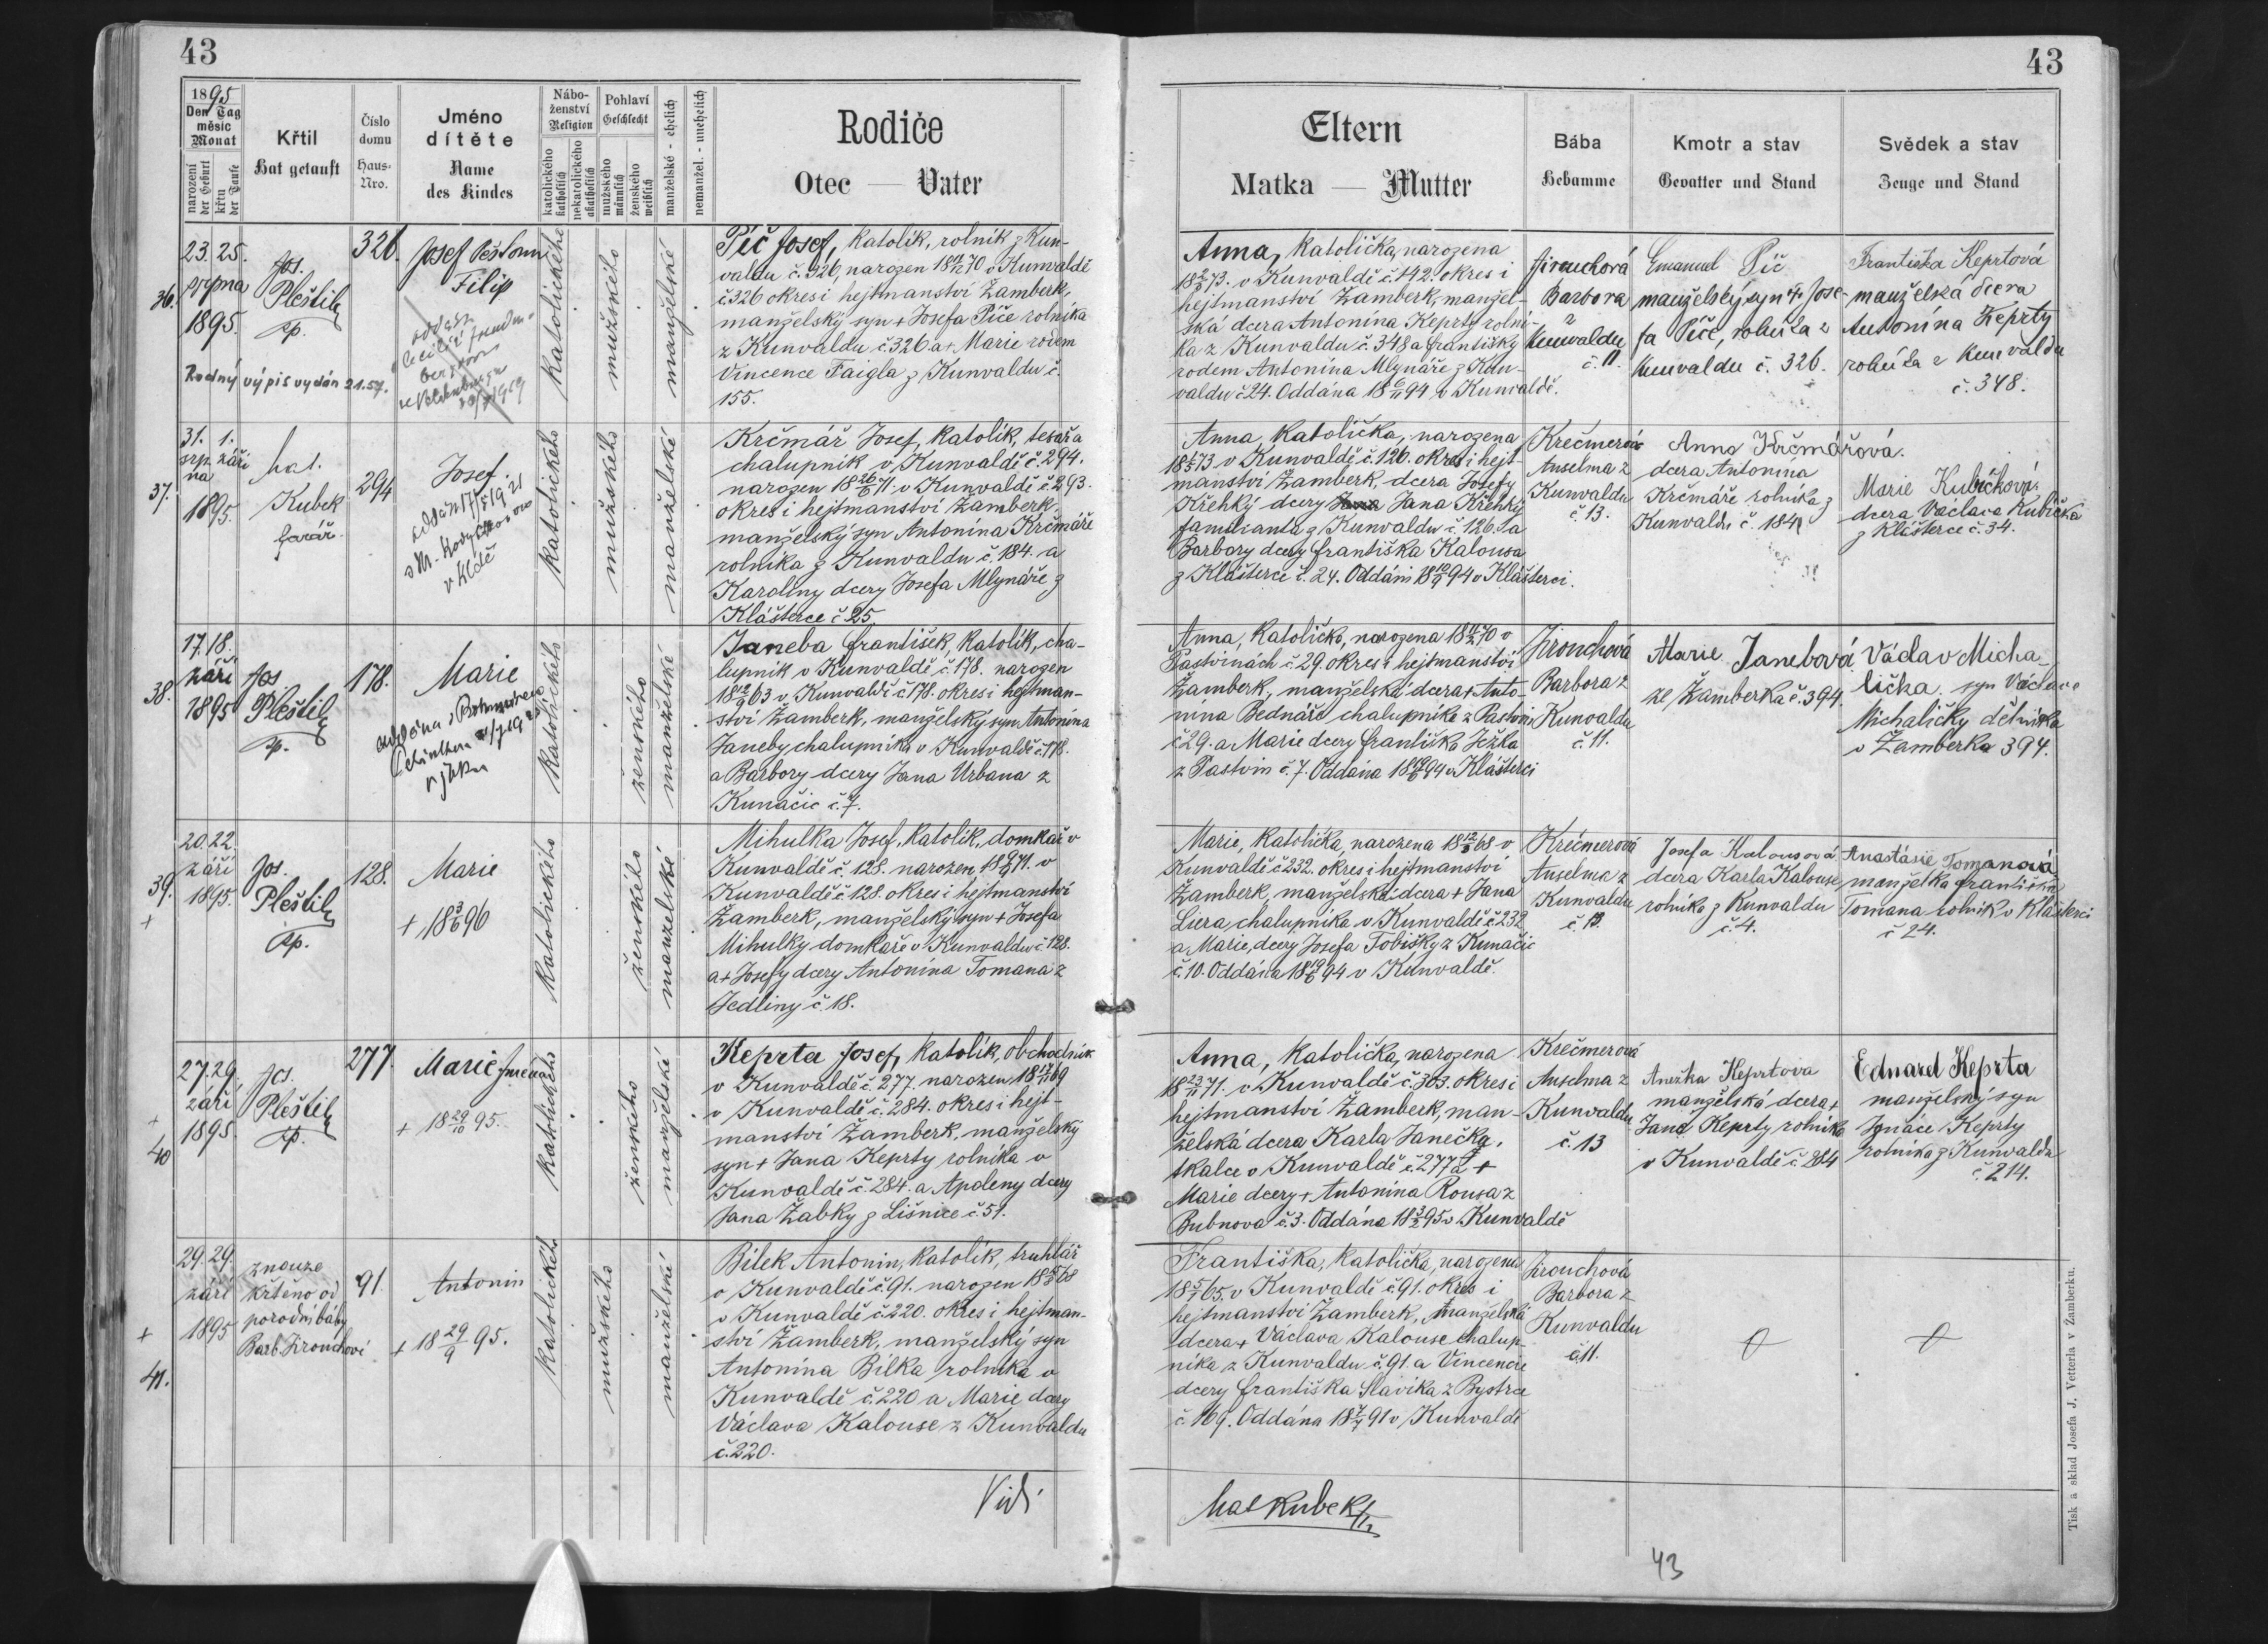 43
43
1895
Den Tag
měsíc
Monat
narození
der Geburt
křtu
der Taufe
Křtil
Hat getauft
Číslo
domu
Haus-
Nro.
Jméno
dítěte
Name
des Kindes
Nábo-
ženství
Religion
katolického
katholisch
nekatolického
akatholisch
Pohlaví
Geschlecht
mužského
männlich
ženského
weiblich
manželské - ehelich
nemanžel. - unehelich
Rodiče
Otec — Vater
Eltern
Matka — Mutter
Bába
Hebamme
Kmotr a stav
Gevatter und Stand
Svědek a stav
Zeuge und Stand
36.
23. 25.
srpna
1895.
Jos.
Pleštil
kp.
326.
Josef
Filip
Rodný výpis vydán 21.57.
katolického
mužského
manželské
Píč Josef, katolík, rolník z Kun-
valdu č. 326, narozen 18 70 v Kunvaldě
č. 326 okres i hejtmanství Žamberk,
manželský syn + Josefa Píče rolníka
z Kunvaldu č. 326 a + Marie rodem
Vincence Faigla z Kunvaldu č.
155.
Anna, katolička, narozena
18 73. v Kunvaldě č. 142. okres i
hejtmanství Žamberk, manžel-
ská dcera Antonína Keprty rolní-
ka z Kunvaldu č. 348 a Františky
rodem Antonína Mlynáře z Kun-
valdu č. 24. Oddána 18 94 v Kunvaldě.
Jirouchová
Barbora
z
Kunvaldu
č. 11.
Emanuel Píč
manželský syn + Jose-
fa Píče, rolníka z
Kunvaldu č. 326.
Františka Keprtová
manželská dcera
Antonína Keprty
rolníka z Kunvaldu
č. 348.
37.
31. 1.
srp- září
na
1895.
Mat.
Kubek
farář.
294
Josef.
katolického
mužského
manželské
Krčmář Josef, katolík, tesař a
chalupník v Kunvaldě č. 294.
narozen 18 71. v Kunvaldě č. 293.
okres i hejtmanství Žamberk,
manželský syn Antonína Krčmáře
rolníka z Kunvaldu č. 184. a
Karoliny dcery Josefa Mlynáře z
Klášterce č. 25.
Anna, katolička, narozena
18 73 v Kunvaldě č. 126. okres i hejt-
manství Žamberk, dcera Josefy
Křehký dcery Jana Křehký
familianta z Kunvaldu č. 126. a
Barbory dcery Františka Kalousa
z Klášterce č. 24. Oddáni 18 94 v Klášterci.
Krečmerová
Anselma z
Kunvaldu
č. 13.
Anna Krčmářová.
dcera Antonína
Krčmáře rolníka z
Kunvaldu č. 184
Marie Kubíčková.
dcera Václava Kubíčka
z Klášterce č. 34.
38.
17. 18.
září
1895
Jos.
Pleštil
kp.
178.
Marie
katolického
ženského
manželské
Janeba František, katolík, cha-
lupník v Kunvaldě č. 178. narozen
18 63 v Kunvaldě č. 178. okres i hejtman-
ství Žamberk, manželský syn Antonína
Janeby chalupníka v Kunvaldě č. 178.
a Barbory dcery Jana Urbana z
Kunačic č. 7.
Anna, katolička, narozena 18 70 v
Pastvinách č. 29. okres i hejtmanství
Žamberk, manželská dcera + Anto-
nína Bednáře chalupníka z Pastvin
č. 29. a Marie dcery Františka Ježka
z Pastvin č. 7. Oddána 18 94 v Klášterci
Jirouchová
Barbora z
Kunvaldu
č. 11.
Marie Janebová
ze Žamberka č. 394.
Václav Micha-
lička. syn Václava
Michaličky dělníka
v Žamberka 394.
39.
+
20. 22.
září
1895.
Jos.
Pleštil
kp.
128.
Marie
+ 18 3/6 96
katolického
ženského
manželské
Mihulka Josef, katolík, domkář v
Kunvaldě č. 128. narozen 18 71. v
Kunvaldě č. 128. okres i hejtmanství
Žamberk, manželský syn + Josefa
Mihulky domkáře v Kunvaldu č. 128.
a + Josefy dcery Antonína Tomana z
Jedliny č. 18.
Marie, katolička, narozena 18 68 v
Kunvaldě č. 232. okres i hejtmanství
Žamberk, manželská dcera + Jana
chalupníka v Kunvaldě č. 232
a Marie, dcery Josefa Tobišky z Kunačic
č. 10. Oddána 18 94 v Kunvaldě.
Krečmerová
Anselma z
Kunvaldu
č. 13.
Josefa Kalousová
dcera Karla Kalouse
rolníka z Kunvaldu
č. 4.
Anastásie Tomanová
manželka Františka
Tomana rolník v Klášterci
č 24.
+
40
27. 29.
září
1895.
Jos.
Pleštil
kp.
277.
Marie
+ 18 29/10 95.
katolického
ženského
manželské
Keprta Josef, katolík, obchodník
v Kunvaldě č. 277. narozen 18 69
v Kunvaldě č. 284. okres i hejt-
manství Žamberk, manželský
syn + Jana Keprty rolníka v
Kunvaldě č. 284. a Apoleny dcery
Jana Žabky z Lišnice č. 51.
Anna, katolička, narozena
18 23/11 71. v Kunvaldě č. 303. okres i
hejtmanství Žamberk, man-
želská dcera Karla Janečka,
tkalce v Kunvaldě č. 277 a +
Marie dcery + Antonína Rousa z
Bubnova č. 3. Oddána 18 95 v Kunvaldě
Krečmerová
Anselma z
Kunvaldu
č. 13
Anežka Keprtova
manželská dcera +
Jana Keprty rolníka
v Kunvaldě č 284
Eduard Keprta
manželský syn
Ignáce Keprty
rolníka z Kunvaldu
č. 214.
+
41.
29. 29.
září
1895
z nouze
křtěno od
porodní báby
Barb. Jirouchové
91.
Antonin
+ 18 29/9 95.
katolického
mužského
manželské
Bílek Antonin, katolík, truhlář
v Kunvaldě č. 91. narozen 18 68
v Kunvaldě č. 220. okres i hejtman-
ství Žamberk, manželský syn
Antonína Bílka rolníka v
Kunvaldě č. 220 a Marie dcery
Václava Kalouse z Kunvaldu
č. 220.
Františka, katolička, narozena
18 65. v Kunvaldě č. 91. okres i
hejtmanství Žamberk, manželská
dcera + Václava Kalouse chalup-
níka z Kunvaldu č. 91. a Vincencie
dcery Františka Slavíka z Bystrce
č. 169. Oddána 18 91 v Kunvaldě
Jirouchová
Barbora z
Kunvaldu
č. 11.
Vidi
Mat Kubek
43
Tisk a sklad Josefa J. Vetterla v Žamberku.